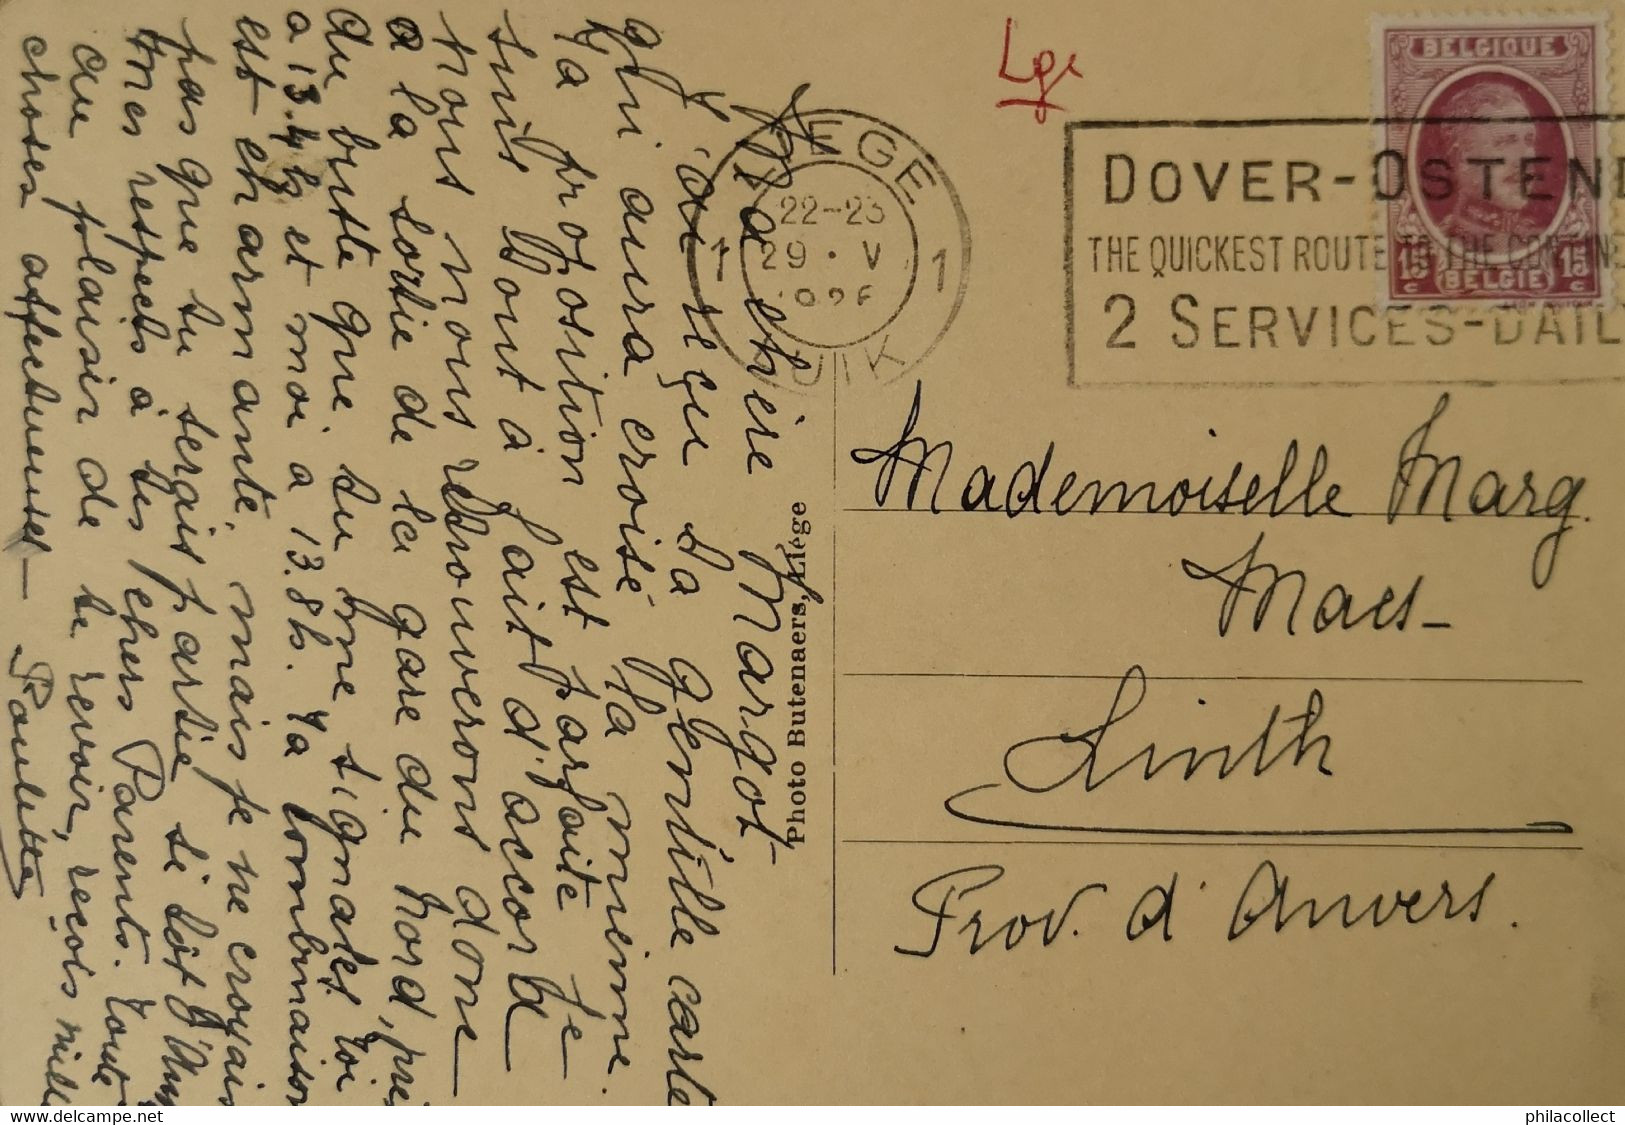 Ma chère Margot-
J'ai reçu ta gentille carte
qui aura croisé la mienne.
Ta proposition est parfaite je
suis tout à fait d'accord
nous nous retrouverons donc
à la sortie de la gare du Nord, près
du buste que tu me signales toi
à 13.4 h et moi à 13.8 h. Ta combinaison
est charmante, mais je ne croyais
pas que tu serais partie si tôt d'Anv
mes respects à tes chers Parents. Toute
au plaisir de te revoir, reçois mille
choses affectueuses-
Paulette
Photo Butenaers, Liége
Lge
LIEGE
1 1
22-23
29 · V
1926
LUIK
DOVER-OSTEND
THE QUICKEST ROUTE TO THE CONTINE
2 SERVICES-DAIL
BELGIQUE
15 c BELGIË 15 c
Mademoiselle Marg.
Maes-
Linth
Prov. d'Anvers.
philacollect.com
philacollect